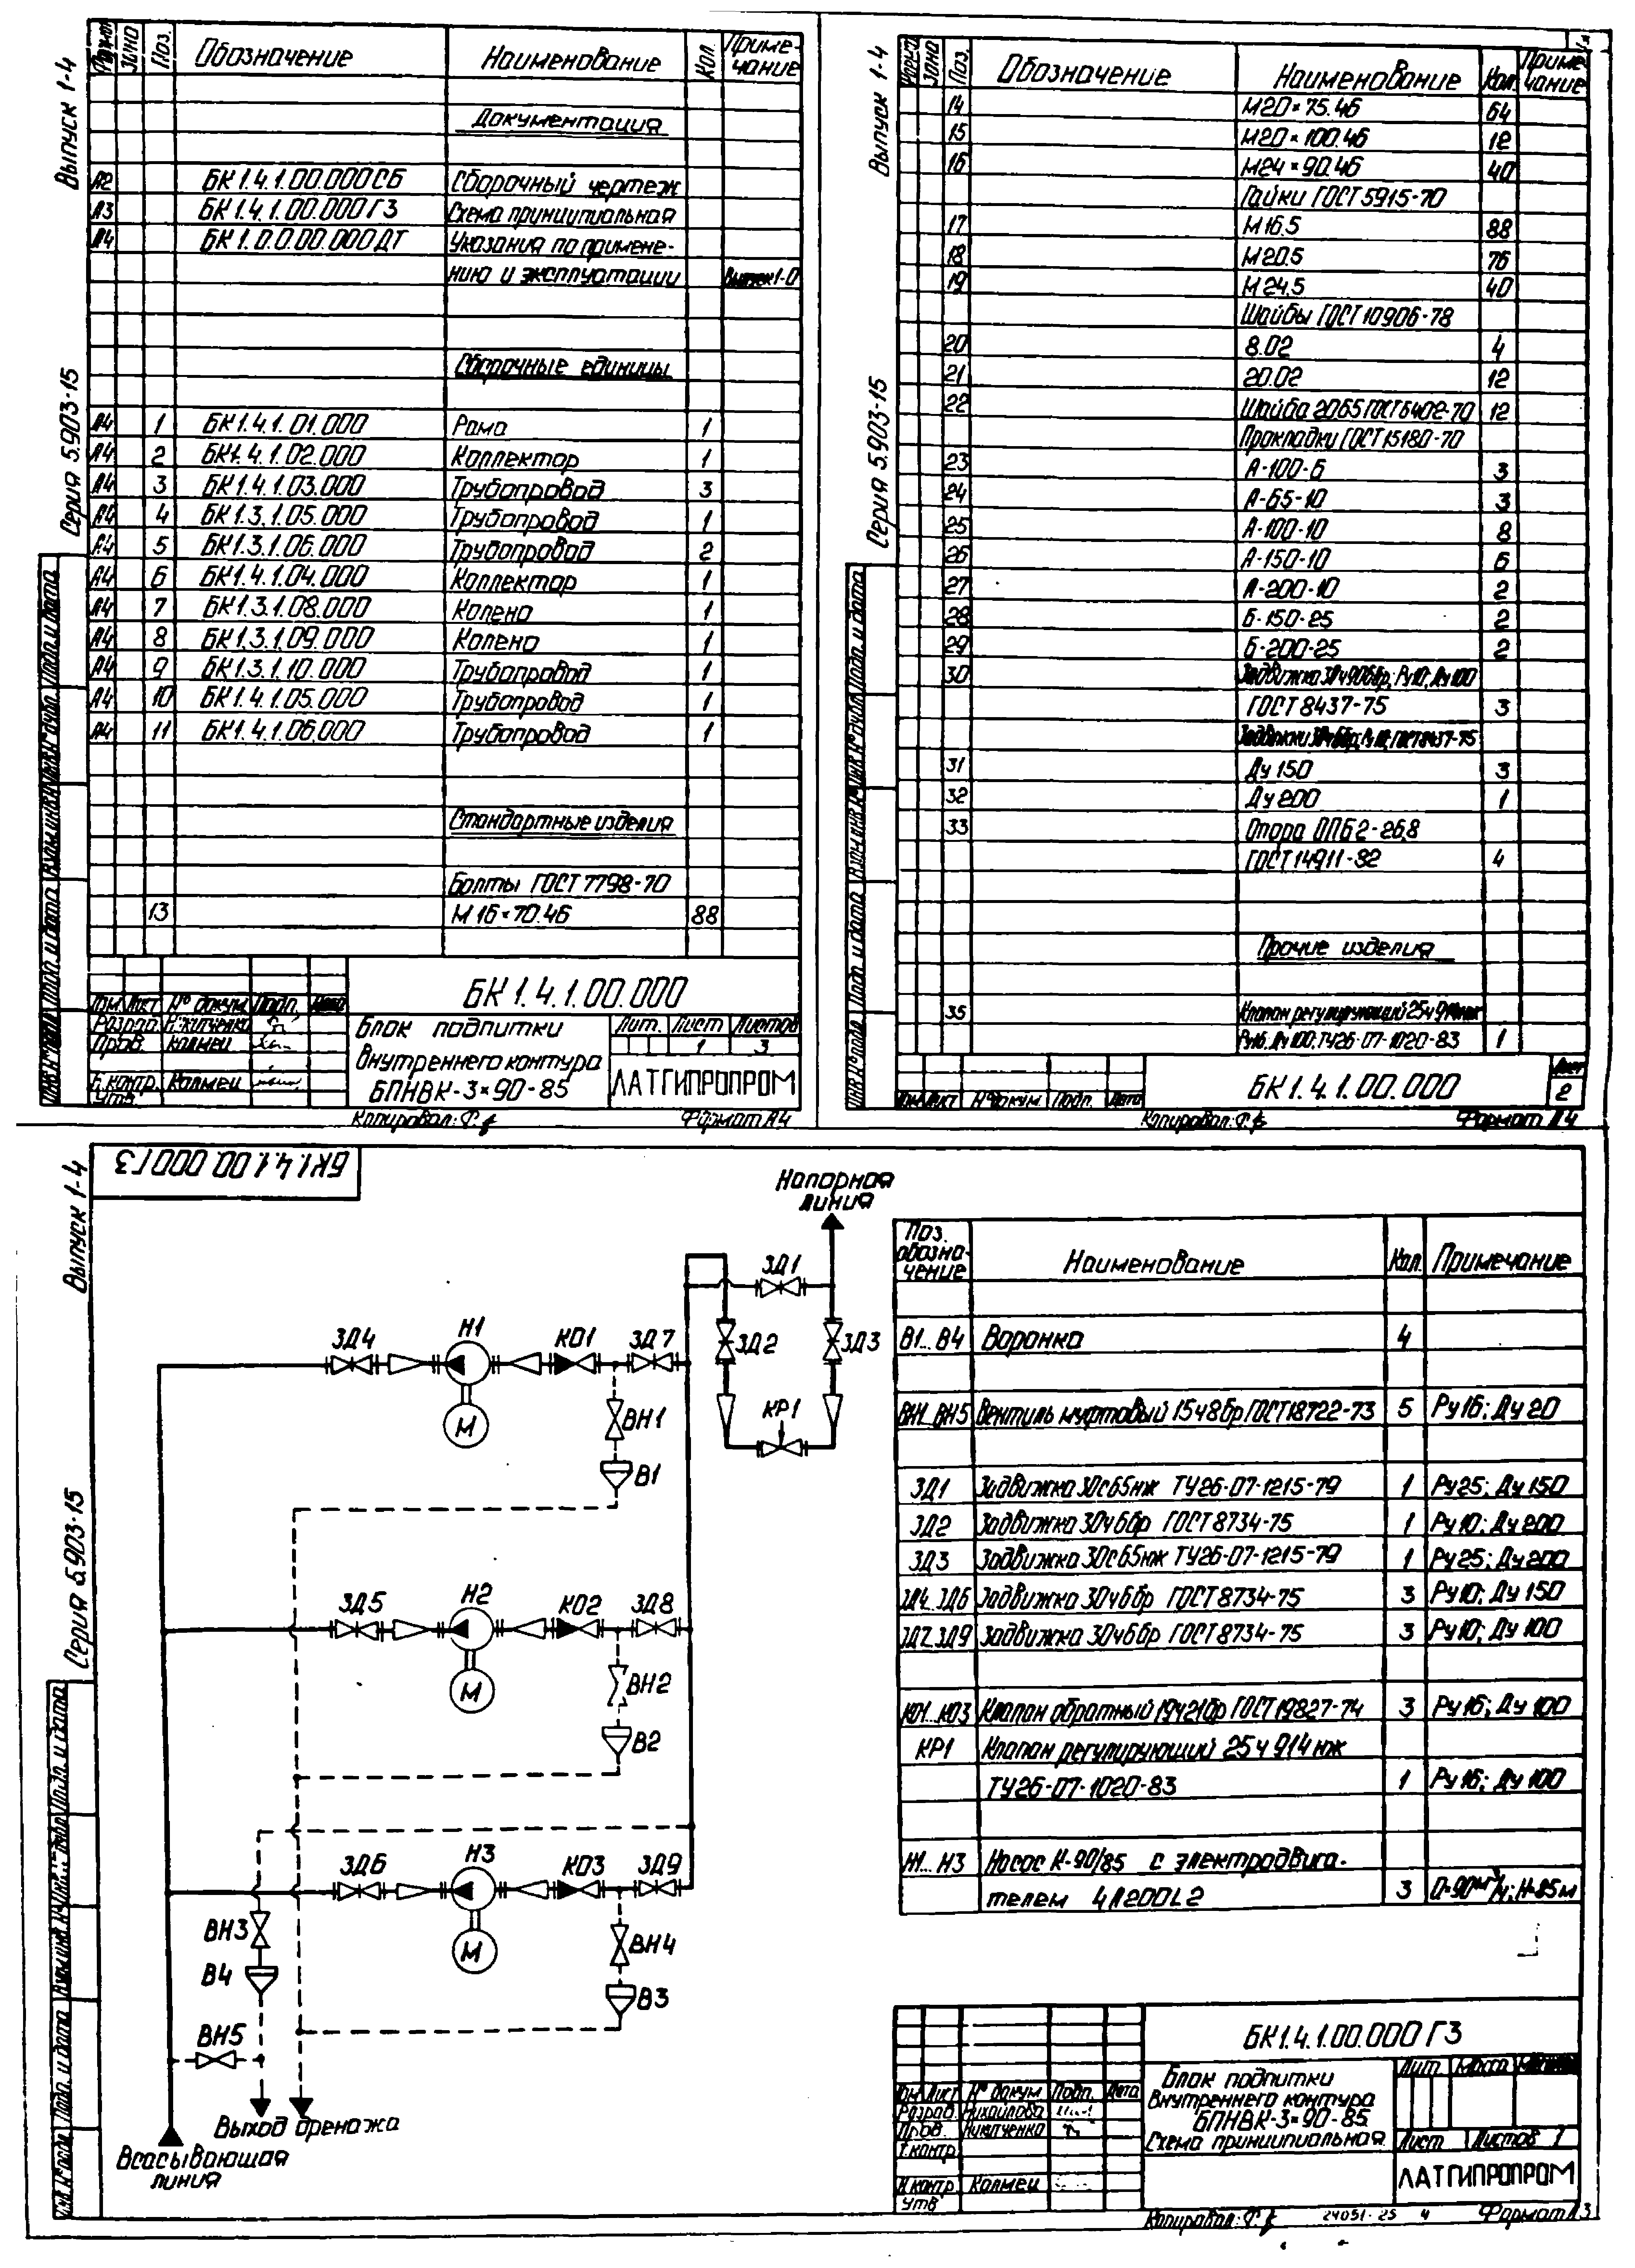 Выпуск 1-4
Серия 5.903-15
Зона Поз. Обозначение Наименование Кол. Примечание
Документация
А2 БК1.4.1.00.000СБ Сборочный чертеж
А3 БК1.4.1.00.000Г3 Схема принципиальная
А4 БК1.0.0.00.000ДТ Указания по примене-
нию и эксплуатации Выпуск1-0
Сборочные единицы
А4 1 БК1.4.1.01.000 Рама 1
А4 2 БК1.4.1.02.000 Коллектор 1
А4 3 БК1.4.1.03.000 Трубопровод 3
А4 4 БК1.3.1.05.000 Трубопровод 1
А4 5 БК1.3.1.06.000 Трубопровод 2
А4 6 БК1.4.1.04.000 Коллектор 1
А4 7 БК1.3.1.08.000 Колено 1
А4 8 БК1.3.1.09.000 Колено 1
А4 9 БК1.3.1.10.000 Трубопровод 1
А4 10 БК1.4.1.05.000 Трубопровод 1
А4 11 БК1.4.1.06.000 Трубопровод 1
Стандартные изделия
Болты ГОСТ 7798-70
13 М16×70.46 88
БК1.4.1.00.000
Изм. Лист № докум Подп. Дата
Разраб.
Пров. Калмец
Н.контр. Калмец
Утв.
Блок подпитки
внутреннего контура
БПНВК-3×90-85
Лит. Лист Листов
1 3
ЛАТГИПРОПРОМ
Копировал: Формат А4
Выпуск 1-4
Серия 5.903-15
Зона Поз. Обозначение Наименование Кол. Примечание
14 М20×75.46 64
15 М20×100.46 12
16 М24×90.46 40
Гайки ГОСТ 5915-70
17 М16.5 88
18 М20.5 76
19 М24.5 40
Шайбы ГОСТ 10906-78
20 8.02 4
21 20.02 12
22 Шайба 20 65Г ГОСТ 6402-70 12
Прокладки ГОСТ 15180-70
23 А-100-6 3
24 А-65-10 3
25 А-100-10 8
26 А-150-10 6
27 А-200-10 2
28 Б-150-25 2
29 Б-200-25 2
30 Задвижка 30ч906бр; Ру10; Ду100
ГОСТ 8437-75 3
Задвижки 30ч6бр; Ру10; ГОСТ8437-75
31 Ду 150 3
32 Ду 200 1
33 Опора ОПБ2-26,8
ГОСТ 14911-82 4
Прочие изделия
35 Клапан регулирующий 25ч914нж
Ру16; Ду100; ТУ26-07-1020-83 1
БК1.4.1.00.000
Лист
2
Изм Лист № докум Подп. Дата
Копировал: Формат А4
Выпуск 1-4
Серия 5.903-15
БК1.4.1.00.000Г3
Напорная
линия
ЗД1
ЗД2 ЗД3
КР1
ЗД4 Н1 КО1 ЗД7
М ВН1
В1
ЗД5 Н2 КО2 ЗД8
М ВН2
В2
ЗД6 Н3 КО3 ЗД9
ВН3 М ВН4
В4 В3
ВН5
Выход дренажа
Всасывающая
линия
Поз. обозна-чение Наименование Кол. Примечание
В1...В4 Воронка 4
ВН1...ВН5 Вентиль муфтовый 15ч8бр ГОСТ18722-73 5 Ру16; Ду20
ЗД1 Задвижка 30с65нж ТУ26-07-1215-79 1 Ру25; Ду150
ЗД2 Задвижка 30ч6бр ГОСТ 8734-75 1 Ру10; Ду200
ЗД3 Задвижка 30с65нж ТУ26-07-1215-79 1 Ру25; Ду200
ЗД4...ЗД6 Задвижка 30ч6бр ГОСТ 8734-75 3 Ру10; Ду150
ЗД7...ЗД9 Задвижка 30ч6бр ГОСТ 8734-75 3 Ру10; Ду100
КО1...КО3 Клапан обратный 19ч21бр ГОСТ 19827-74 3 Ру16; Ду100
КР1 Клапан регулирующий 25ч914нж
ТУ26-07-1020-83 1 Ру16; Ду100
Н1...Н3 Насос К-90/85 с электродвига-
телем 4А200L2 3 Q=90м³/ч; Н=85м
БК1.4.1.00.000Г3
Изм Лист № докум Подп. Дата
Разраб. Михайлова
Пров. Никитченко
Т.контр.
Н.контр Калмец
Утв
Блок подпитки
внутреннего контура
БПНВК-3×90-85
Схема принципиальная
Лит. Масса
Лист Листов 1
ЛАТГИПРОПРОМ
Копировал: 24051-25 4 Формат А3